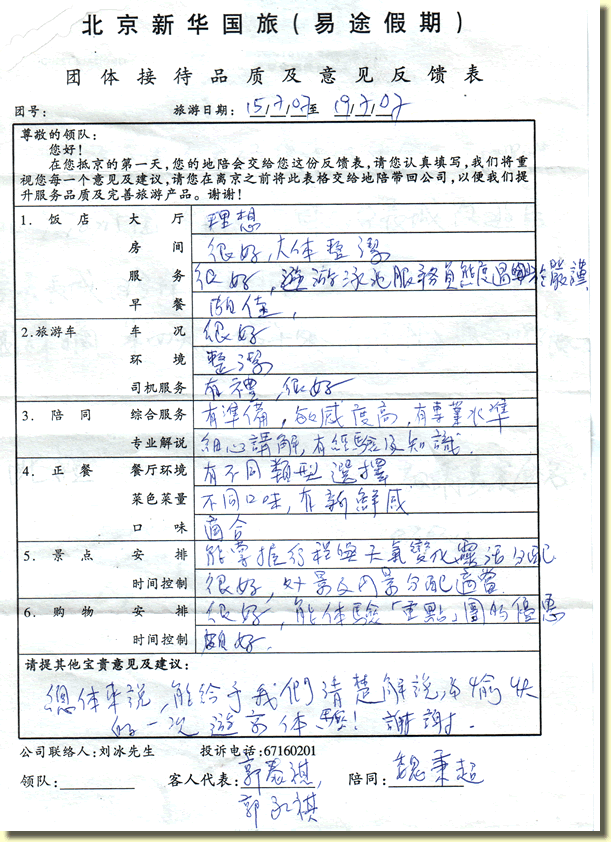 北京新华国旅(易途假期)
团体接待品质及意见反馈表
团号: 旅游日期: 15,7,07至 19,7,07
尊敬的领队:
您好!
在您抵京的第一天,您的地陪会交给您这份反馈表,请您认真填写,我们将重
视您每一个意见及建议,请您在离京之前将此表格交给地陪带回公司,以便我们提
升服务品质及完善旅游产品。谢谢!
1. 饭店 大厅 理想
房间 很好,大体整潔
服务 很好,遊泳池服務員態度過 嚴謹
早餐 頗佳,
2.旅游车 车况 很好
环境 整潔
司机服务 有禮,很好
3. 陪同 综合服务 有準備,敏感度高,有專業水準
专业解说 細心講解,有經驗及知識.
4. 正餐 餐厅环境 有不同類型選擇
菜色菜量 不同口味,有新鮮感
口味 適合
5. 景点 安排 能掌握行程與天氣變化靈活分配
时间控制 很好,外景及内景分配適當
6. 购物 安排 很好,能体驗「重點」團的優惠
时间控制 頗好.
请提其他宝贵意见及建议:
總体來説,能给予我們清楚解説, 愉快
的一次遊京体驗! 謝謝.
公司联络人:刘冰先生 投诉电话:67160201
领队: 客人代表: 郭 祺, 陪同: 魏秉超
郭 祺